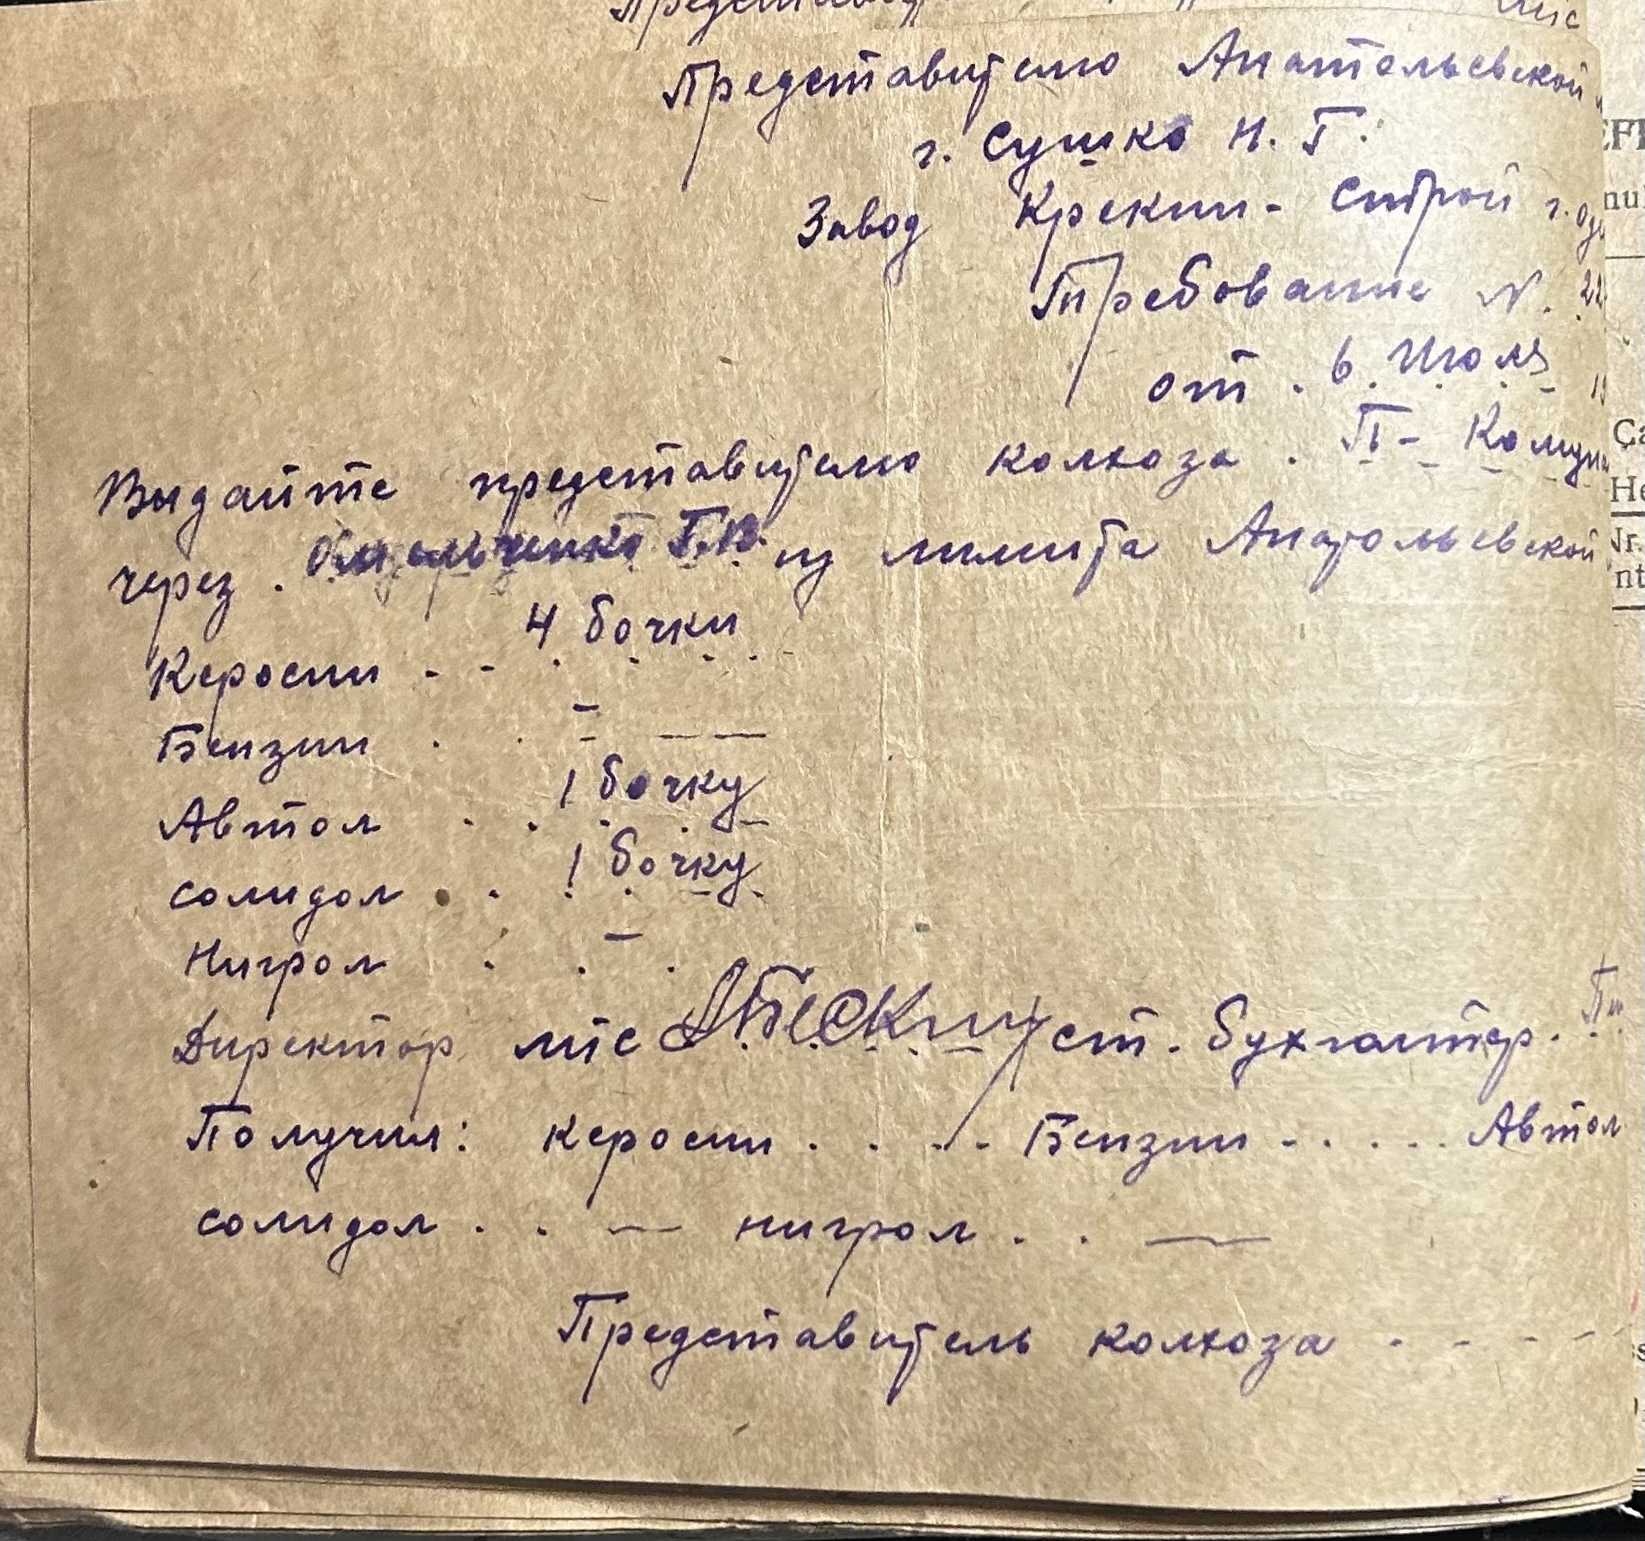 Представителю Анатольевской
г. Сушко Н. Г.
Завод Крекин-Строй г. Оде
Требование N. 22
от . 6. Июля
Выдайте представителю колхоза . П-Комуна
через . Омельченко Г.В. из лимита Анатольевской
4 бочки
Керосин
Бензин . . - — —
1 бочку
Автол
1 бочку
солидол
Нигрол . . - .
Директор мтс ст. бухгалтер.
Получил: керосин . . . . Бензин - . . . . Автол
солидол . . — нигрол . . —
Представитель колхоза . - - -
EFI
nul
Ça
He